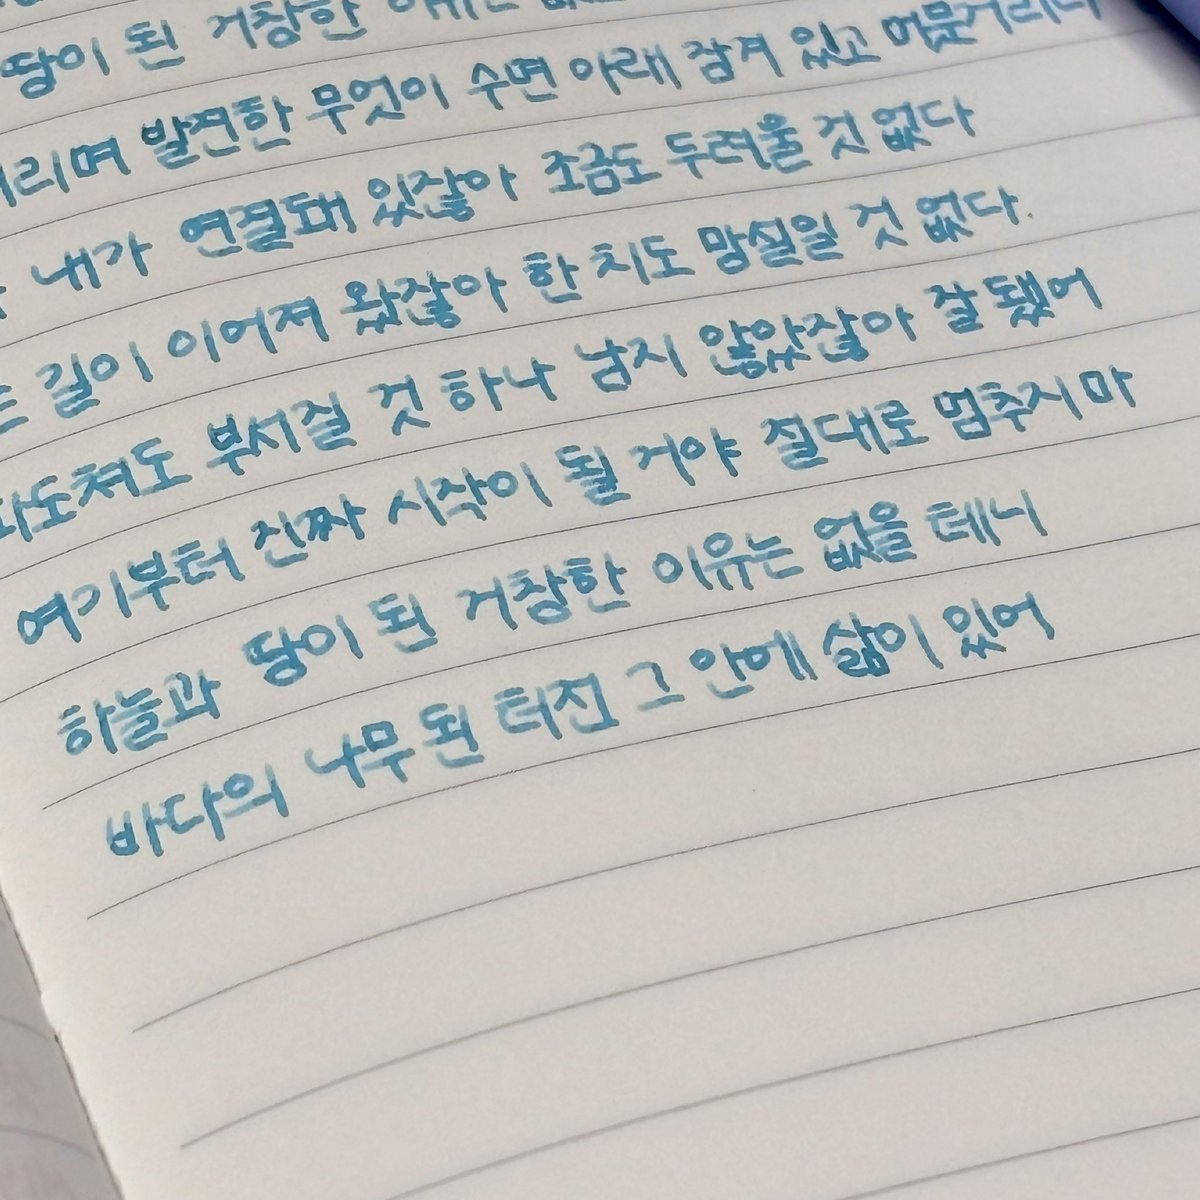 땅이 된 거창한 이유는
발견한 무엇이 수면 아래 잠겨 있고 머뭇거리니
내가 연결돼 있잖아 조금도 두려울 것 없다
길이 이어져 왔잖아 한 치도 망설일 것 없다.
파도쳐도 부서질 것 하나 남지 않았잖아 잘 됐어
여기부터 진짜 시작이 될 거야 절대로 멈추지 마
하늘과 땅이 된 거창한 이유는 없을 테니
바다의 나무 된 터전 그 안에 삶이 있어